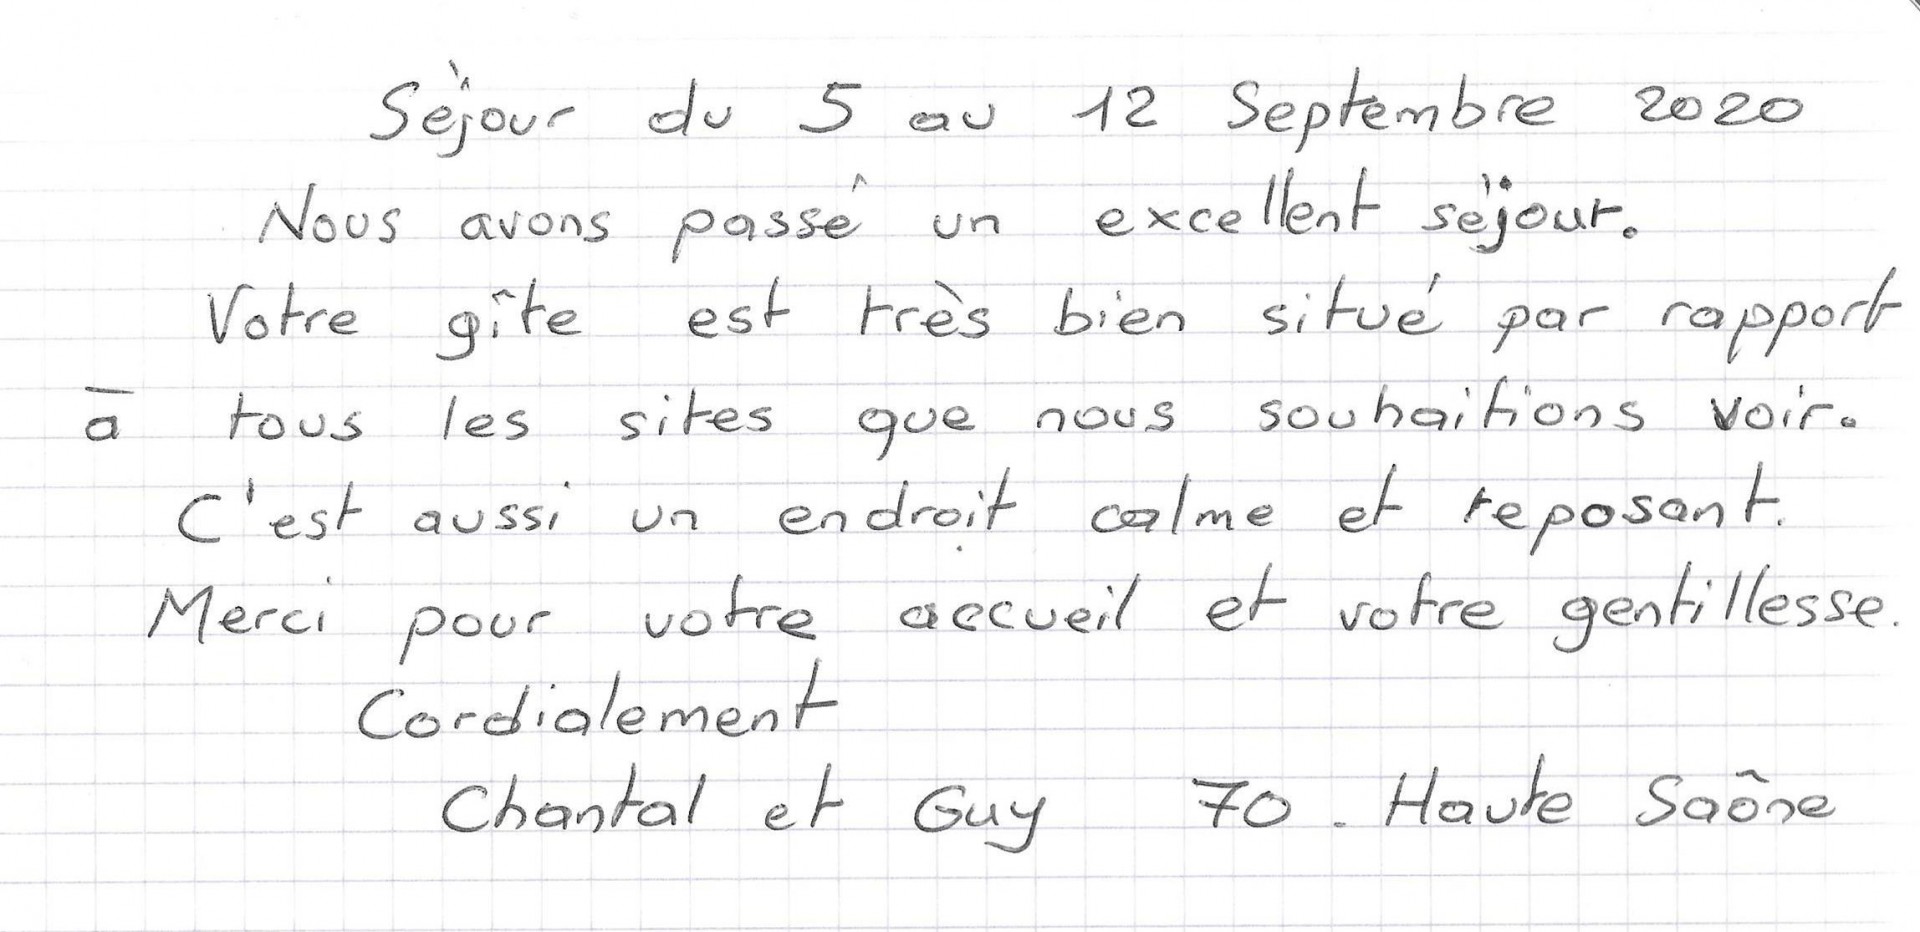 Séjour du 5 au 12 Septembre 2020
Nous avons passé un excellent séjour.
Votre gîte est très bien situé par rapport
à tous les sites que nous souhaitions voir.
C'est aussi un endroit calme et reposant.
Merci pour votre accueil et votre gentillesse.
Cordialement
Chantal et Guy 70. Haute Saône